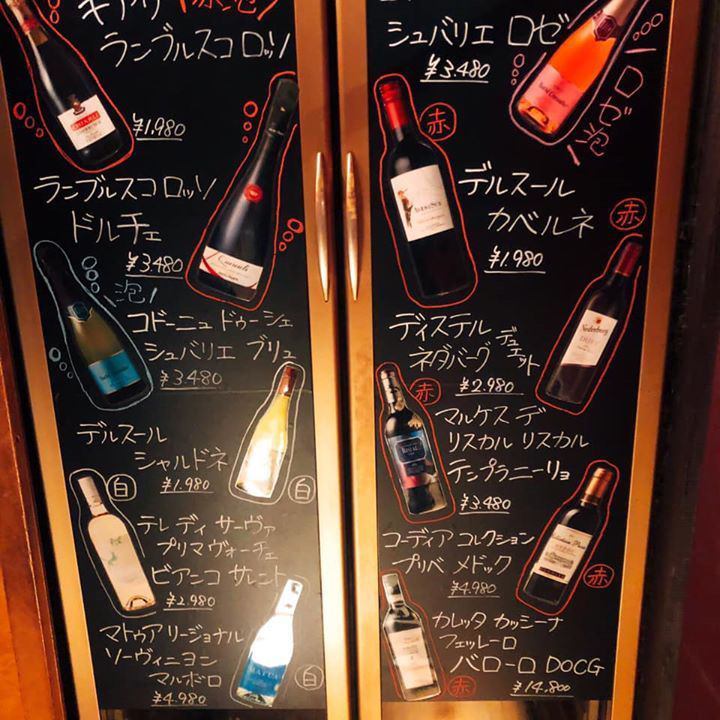 ランブルスコ ロッソ
¥1,980
ランブルスコ ロッソ
ドルチェ
¥3.480
泡
コドーニュ ドゥーシェ
シュバリエ ブリュ
¥3.480
デルスール
シャルドネ
¥1.980
白
白
テレ ディ サーヴァ
プリマヴォーチェ
ビアンコ サレント
¥2.980
マトゥア リージョナル
ソーヴィニヨン
マルボロ
¥4.980
白
シュバリエ ロゼ
¥3.480
ロゼ泡
赤
デルスール
カベルネ
¥1.980
赤
ディステル
ネダバーグ デュエット
¥2.980
赤
マルケス デ
リスカル リスカル
テンプラニーリョ
¥3.480
コーディア コレクション
プリベ メドック
¥4.980
赤
カレッタ カッシーナ
フェッレーロ
バローロ DOCG
¥14.800
赤